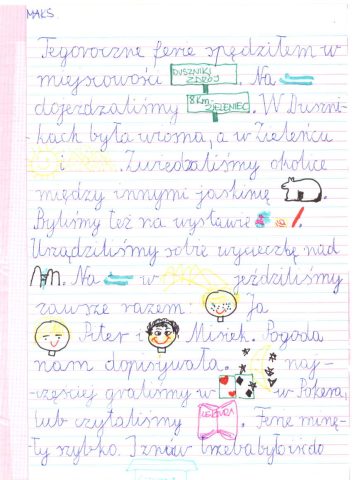 MAKS
Tegoroczne ferie spędziłem w
miejscowości DUSZNIKI ZDRÓJ. Na
dojerdzaliśmy 8 km ZIELENIEC. W Duszni-
kach była wiosna, a w Zieleńcu
i . Zwiedzaliśmy okolice
między innymi jaskinię .
Byliśmy też na wystawie .
Urządziliśmy sobie wycieczkę nad
. Na w jeździliśmy
zawsze razem: Ja
Piter i Misiek. Pogoda
nam dopisywała. naj-
-częsciej graliśmy w w Pokera,
lub czytaliśmy LEKTURA. Ferie minę-
ły szybko. I znów trzeba było iść do